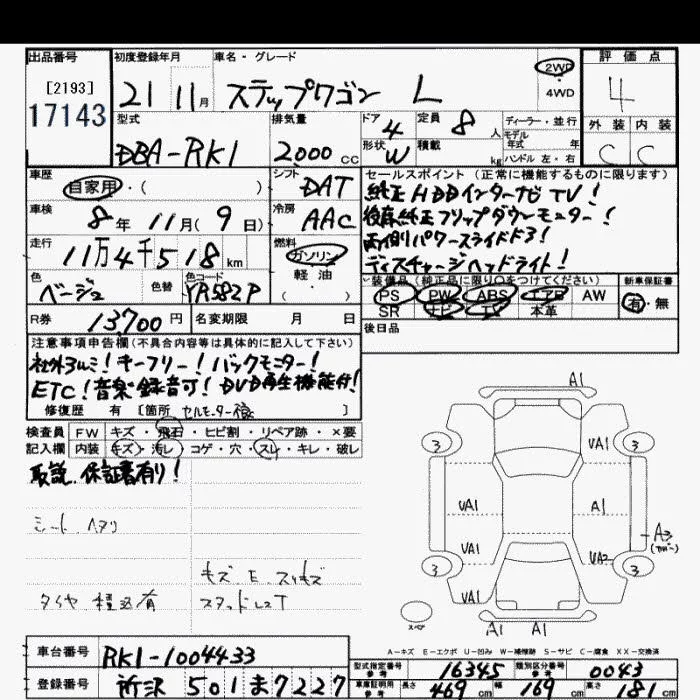 出品番号 初度登録年月 車名・グレード 評価点
[2193]
17143
21 11月 ステップワゴン L 2WD
4WD
4
型式 排気量 ドア 定員 ディーラー・並行 外装 内装
DBA-RK1 2000cc 4 8人 モデル年式 年
形状 W 積載 kg ハンドル 左・右 C C
車歴 シフト セールスポイント(正常に機能するものに限ります)
自家用・( ) DAT 純正HDDインターナビTV!
車検 冷房 後席純正フリップダウンモニター!
8年11月(9日) AAC 両側パワースライドドア!
走行 燃料 ディスチャージヘッドライト!
11万4千518km ガソリン
軽油・
( )
色 色替 色コード 装備品(純正品に限り○をつけてください) 新車保証書
ベージュ YR582P PS PW ABS エアB AW 有・無
SR ナビ TV 本革
R券 13700円 名変期限 月 日 後日品
注意事項申告欄(不具合内容等は具体的に記入して下さい)
社外アルミ!キーフリー!バックモニター!
ETC!音楽録音可!DVD再生機能付!
修復歴 有 [箇所 セルモーター ]
検査員 FW キズ・飛石・ヒビ割・リペア跡・×要
記入欄 内装 キズ・汚レ・コゲ・穴・スレ・キレ・破レ
取説、保証書有り!
シート ヘタリ
キズ E スリキズ
タイヤ積込有 スタッドレスT
A1
3 VA1 3
VA1 A1
VA1 A3
3 VA2 3
VA1
スペア
A1 A1
A-キズ E-エクボ U-凹み W-補修跡 S-サビ C-腐食 XX-交換済
車台番号 RK1-1004433
型式指定番号 参考 16345 類別区分番号 参考 0043
登録番号 所沢 501 ま 7227
車庫証明用 参考 長さ 469cm 幅 169cm 高さ 181cm